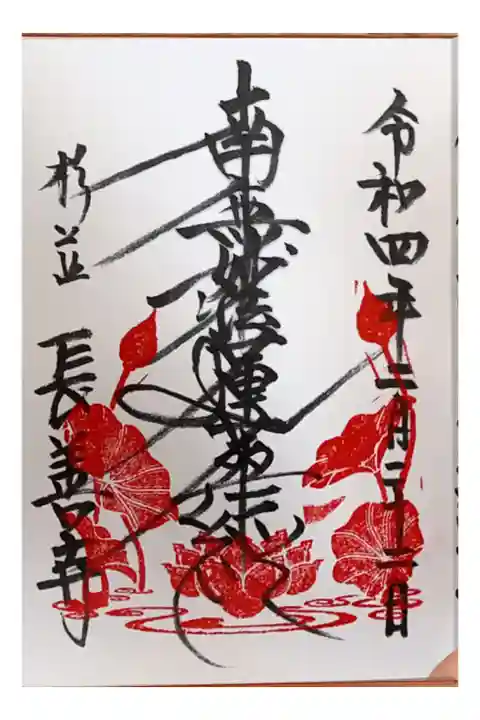 令和四年二月二十二日
南無妙法蓮華経
杉並 長善寺